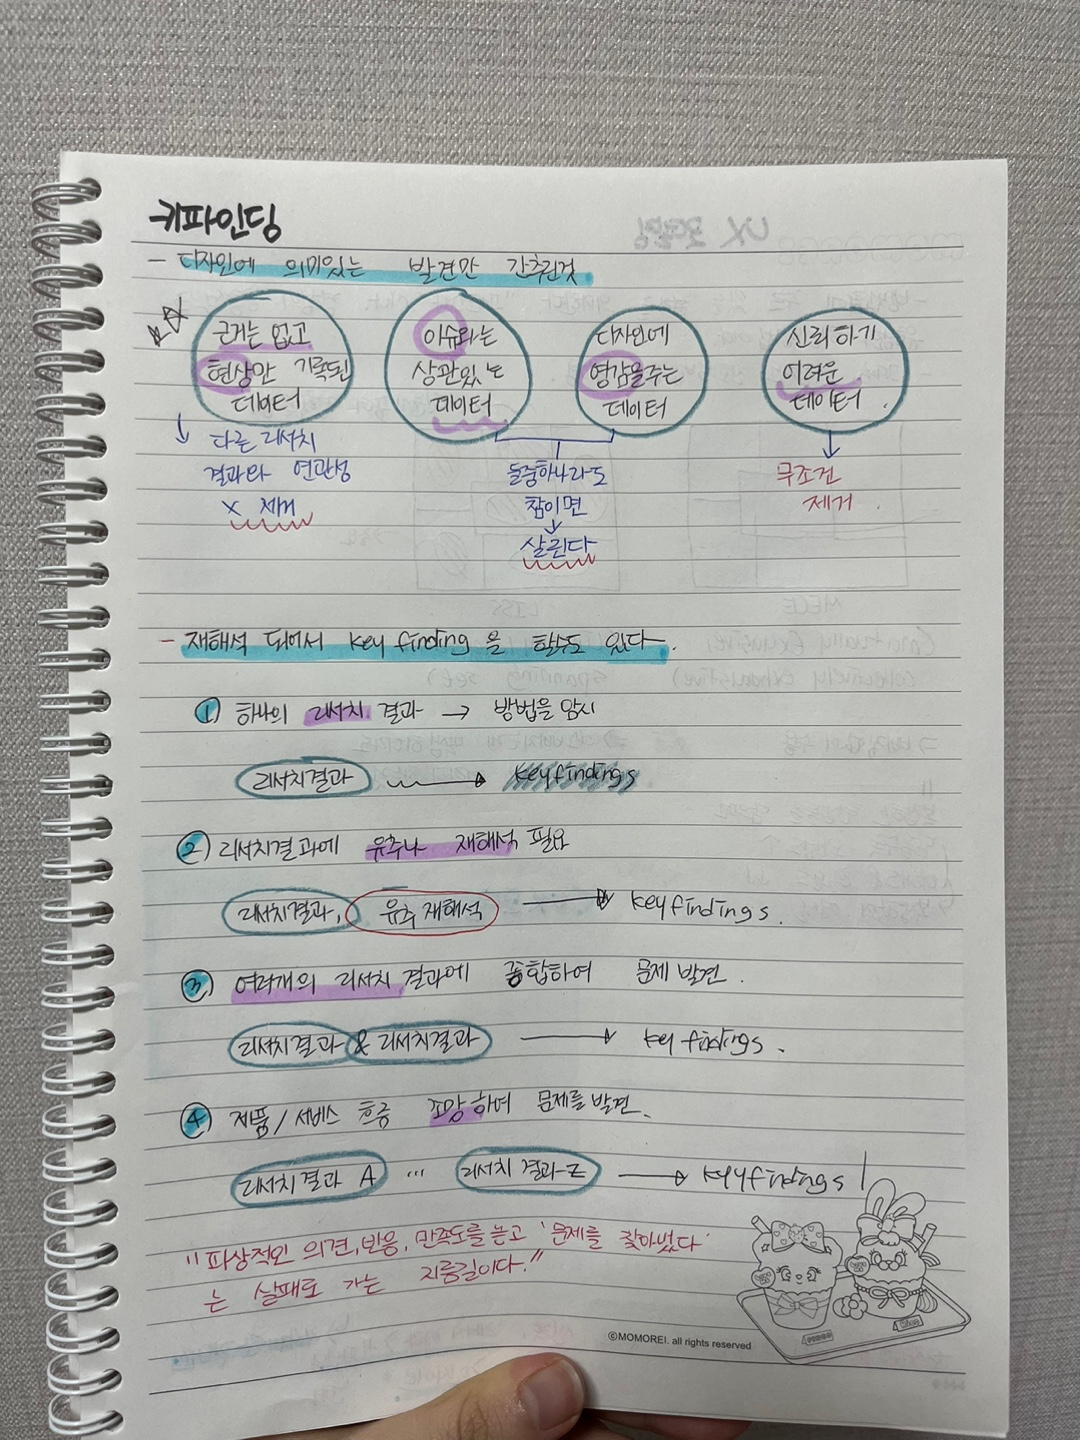 키파인딩
- 디자인에 의미있는 발견만 간추린것
근거는 없고
현상만 기록된
데이터
이슈라는
상관있는
데이터
디자인에
영감을주는
데이터
신뢰하기
어려운
데이터.
↓ 다른 리서치
결과와 연관성
X 제거
둘중하나라도
참이면
↓
살린다
↓
무조건
제거.
- 재해석 되어서 key finding을 할수도 있다.
① 하나의 리서치 결과 → 방법을 암시
리서치결과 → keyfindings
② 리서치결과에 유추나 재해석 필요
리서치결과, 유추 재해석 → keyfindings.
③ 여러개의 리서치 결과에 종합하여 문제 발견.
리서치결과 & 리서치결과 → key findings.
④ 제품/서비스 흐름 조망하여 문제를 발견.
리서치결과 A ... 리서치 결과 Z → keyfindings
"피상적인 의견, 반응, 만족도를 듣고 '문제를 찾아냈다'
는 실패로 가는 지름길이다."
©MOMOREI. all rights reserved